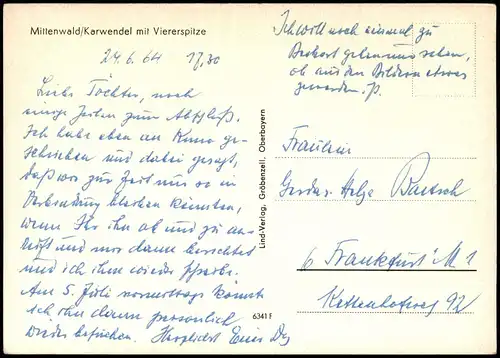 Mittenwald/Karwendel mit Viererspitze
24.6.64 17,30
Liebe Töchter, noch
einige Zeilen zum Abschluß.
Ich habe eben an Kuno ge-
schrieben und dabei gesagt,
daß wir zur Zeit nur so in
Verbindung bleiben könnten,
wenn Ihr ihn ab und zu an-
ruft und mir dann berichtet
und ich ihm wieder schreibe.
Am 5. Juli vormittags könnte
ich ihn dann persönlich
wieder besuchen. Herzlichst Euer
Ich will noch einmal zu
gehen und sehen,
ob aus den Bildern etwas
geworden.
Lind-Verlag, Gröbenzell, Oberbayern
6341 F
Fräulein
Gerda-Helga Bartsch
6 Frankfurt M 1
Kettenhofweg 92